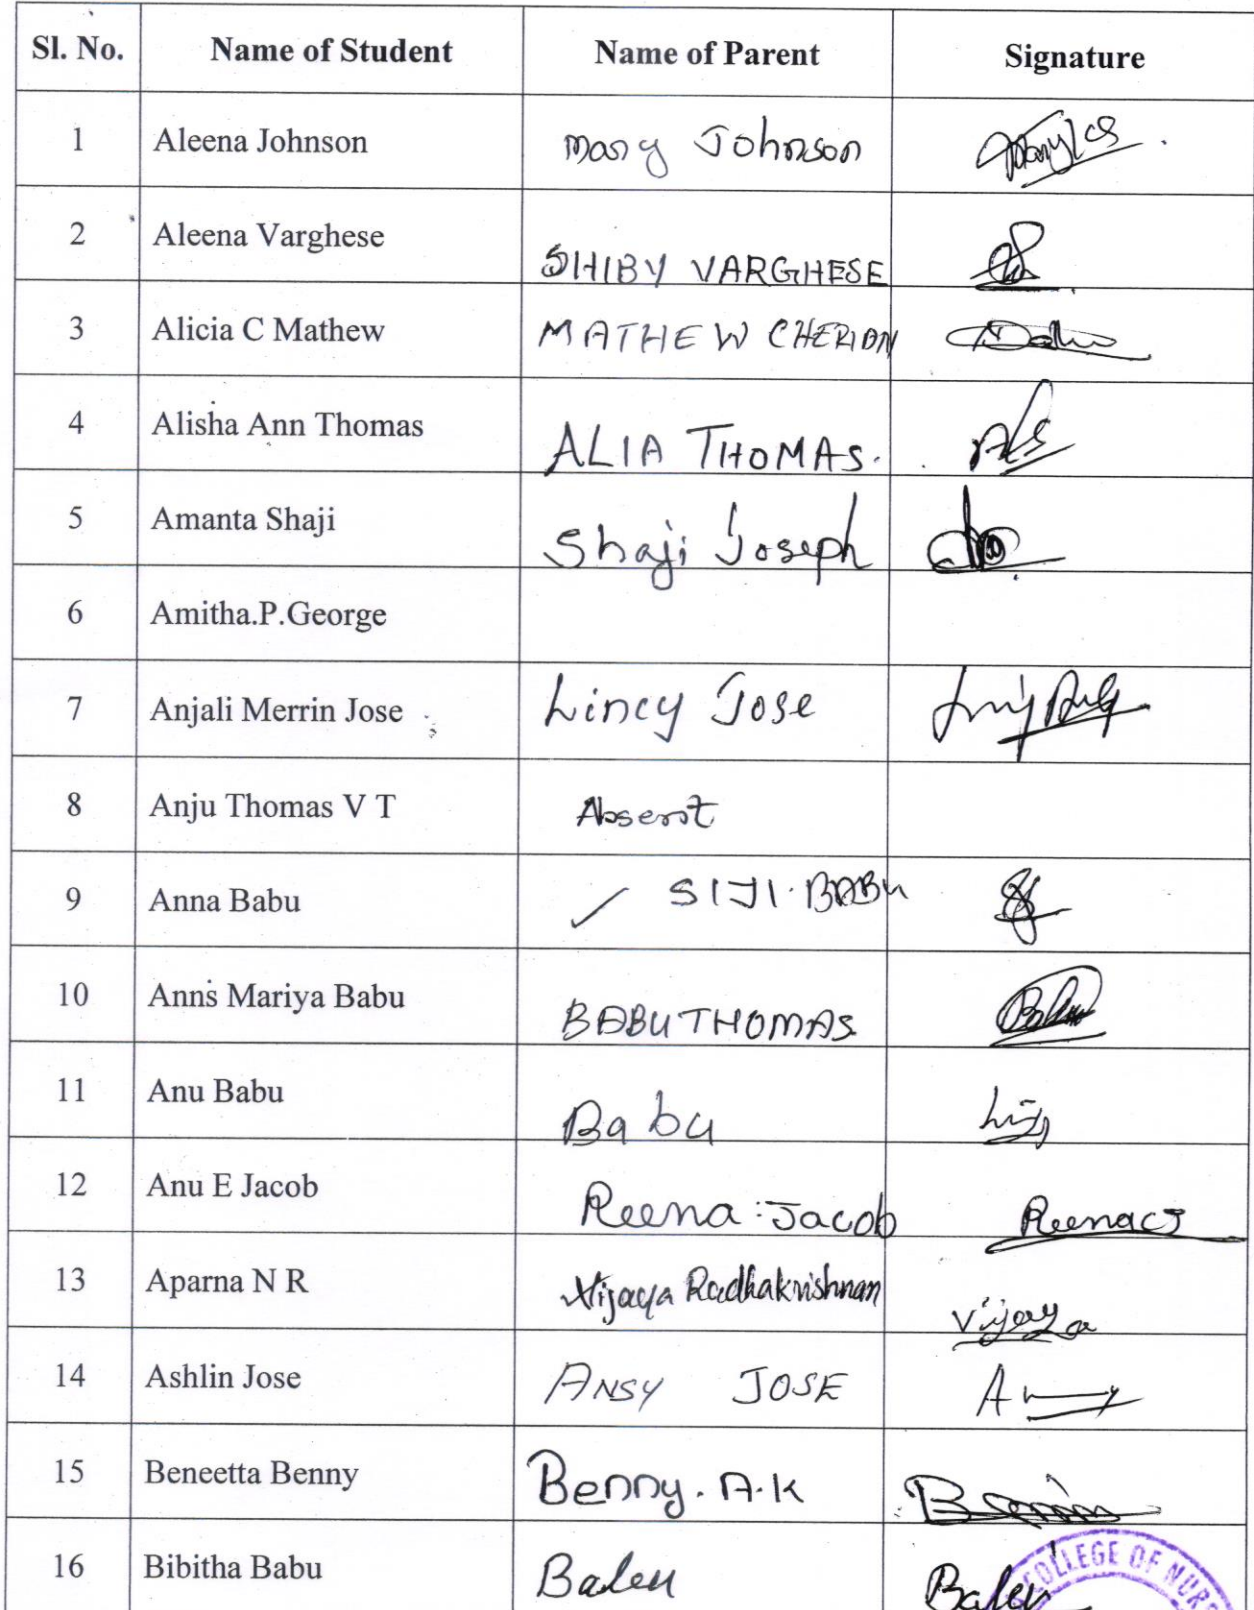 Sl. No. Name of Student Name of Parent Signature
1 Aleena Johnson Mary Johnson
2 Aleena Varghese SHIBY VARGHESE
3 Alicia C Mathew MATHEW CHERIAN
4 Alisha Ann Thomas ALIA THOMAS.
5 Amanta Shaji Shaji Joseph
6 Amitha.P.George
7 Anjali Merrin Jose Lincy Jose
8 Anju Thomas V T Absent
9 Anna Babu SIJI.BABU
10 Anns Mariya Babu BABU THOMAS
11 Anu Babu Babu
12 Anu E Jacob Reena Jacob Reenacj
13 Aparna N R Vijaya Radhakrishnan Vijaya
14 Ashlin Jose ANSY JOSE
15 Beneetta Benny Benny. A.K
16 Bibitha Babu
COLLEGE OF